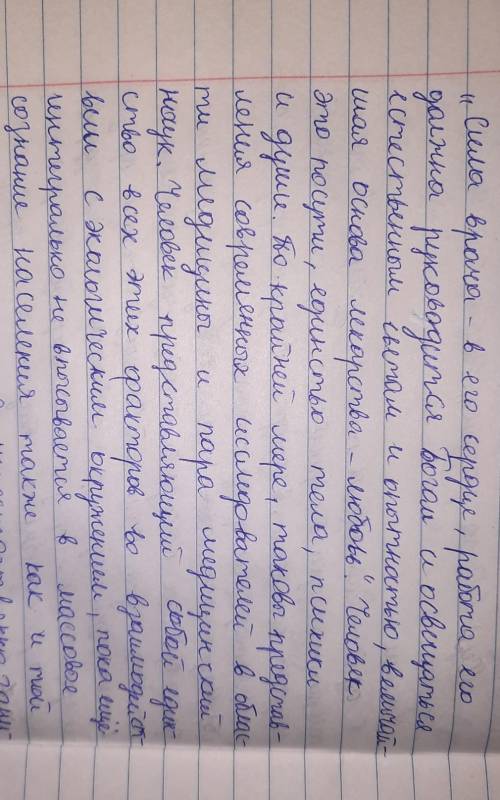 „Сила врача - в его сердце, работа его
должна руководится богом и освещаться
естественным светом и опытностью, величай-
шая основа лекарства - любовь." Человек
это посути, единство тела, психики
и души. По крайней мере, таковы представ-
ления современных исследователей в обла-
ти медицины и пара медицинской
наук. Человек представляющий собой един-
ство всех этих факторов во взаимодейст-
вии с экологическим окружением, пока ещё
централрально не вписывается в массовое
сознание населения также как и той